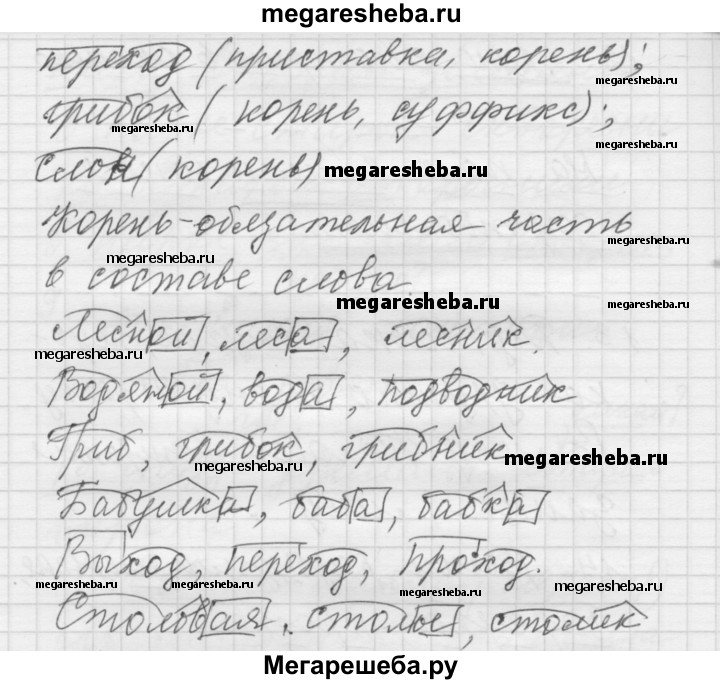 megaresheba.ru
переход (приставка, корень);
megaresheba.ru
грибок (корень, суффикс);
megaresheba.ru
megaresheba.ru
слон (корень)
megaresheba.ru
Корень-обязательная часть
megaresheba.ru
megaresheba.ru
в составе слова.
megaresheba.ru
megaresheba.ru
Лесной, леса, лесник.
megaresheba.ru
Водяной, вода, подводник
megaresheba.ru
Гриб, грибок, грибник
megaresheba.ru
megaresheba.ru
Бабушка, баба, бабка
megaresheba.ru
megaresheba.ru
Выход, переход, проход.
megaresheba.ru
megaresheba.ru
megaresheba.ru
Столовая, столы, столик
megaresheba.ru
Мегарешеба.ру